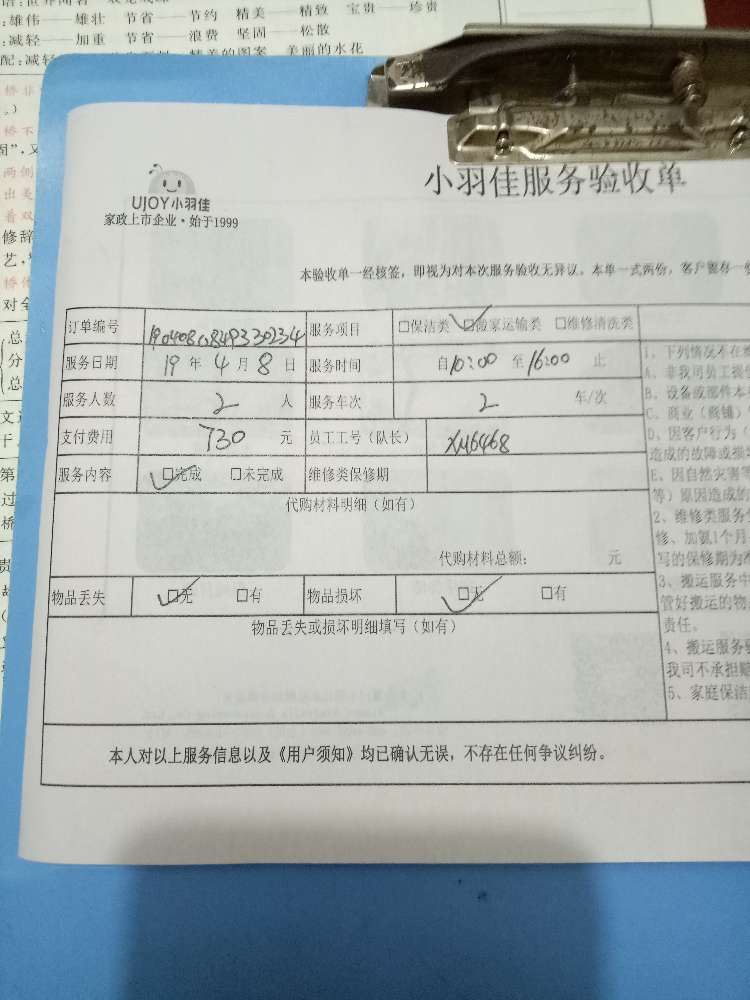 :雄伟——雄壮 节省——节约 精美——精致 宝贵——珍贵
:减轻——加重 节省——浪费 坚固——松散
配:减轻 精美的图案 美丽的水花
UJOY小羽佳
家政上市企业·始于1999
小羽佳服务验收单
本验收单一经核签，即视为对本次服务验收无异议。本单一式两份，客户留存一
订单编号 服务项目 □保洁类 ☑搬家运输类 □维修清洗类
服务日期 19年4月8日 服务时间 自10:00至16:00止
服务人数 2人 服务车次 2车/次
支付费用 730元 员工工号（队长） XM6468
服务内容 ☑完成 □未完成 维修类保修期
代购材料明细（如有）
代购材料总额： 元
物品丢失 ☑无 □有 物品损坏 ☑无 □有
物品丢失或损坏明细填写（如有）
本人对以上服务信息以及《用户须知》均已确认无误，不存在任何争议纠纷。
1、下列情况不在
A、非我司员工提
B、设备或部件本
C、商业（商铺）
D、因客户行为（
造成的故障或损
E、因自然灾害等
等）原因造成的
2、维修类服务
修、加氨1个月
写的保修期为
3、搬运服务中
管好搬运的物
责任。
4、搬运服务
我司不承担赔
5、家庭保洁